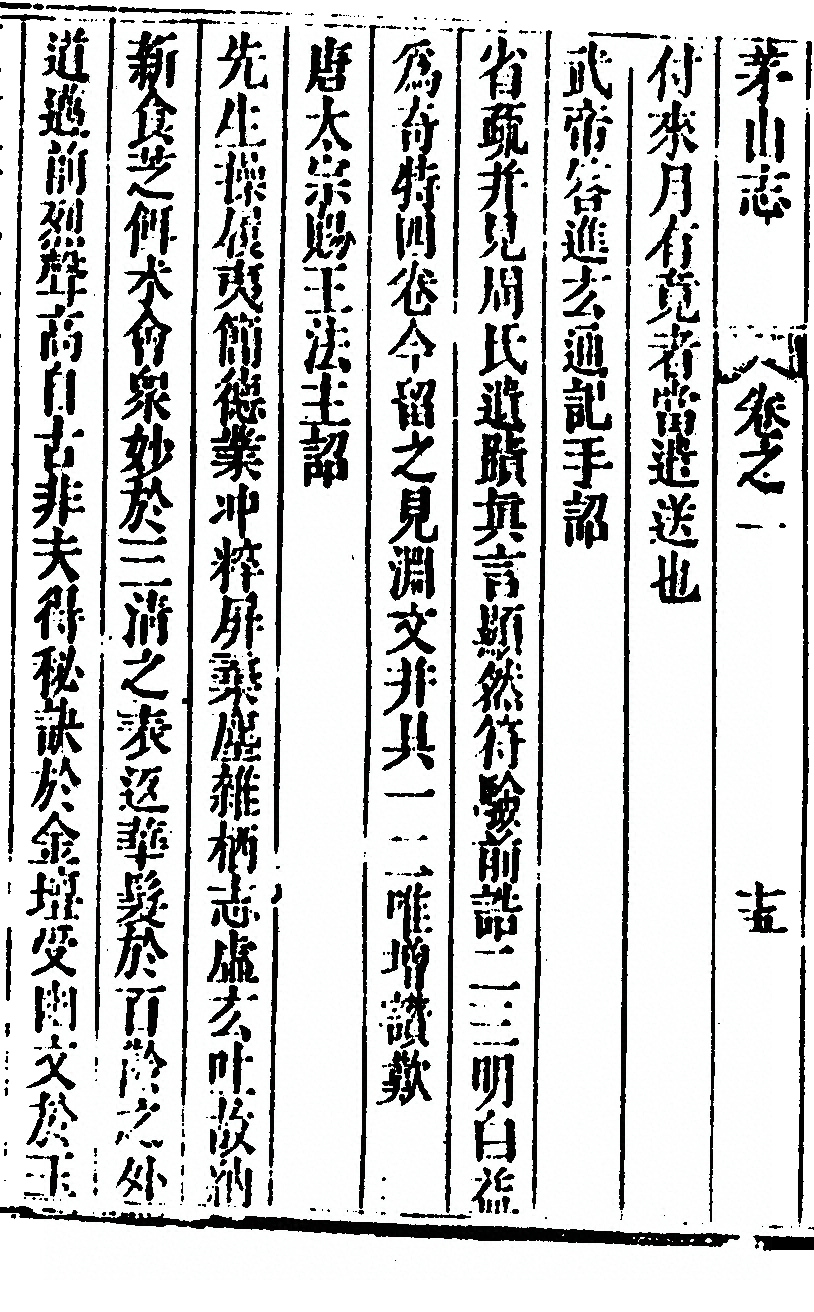 茅山志 卷之一 十五
付來月有竟者當遣送也
武帝答進玄通記手詔
省疏并見周氏遺蹟真言顯然符驗前誥二三明白益
爲奇特四卷今留之見淵文并具一二唯增讃歎
唐太宗賜王法主詔
先生操履夷簡德業冲粹屏棄塵雜栖志虛玄吐故納
新食芝餌朮會衆妙於三清之表返華髮於百齡之外
道邁前烈聲高自古非夫得秘訣於金壇受幽文於玉